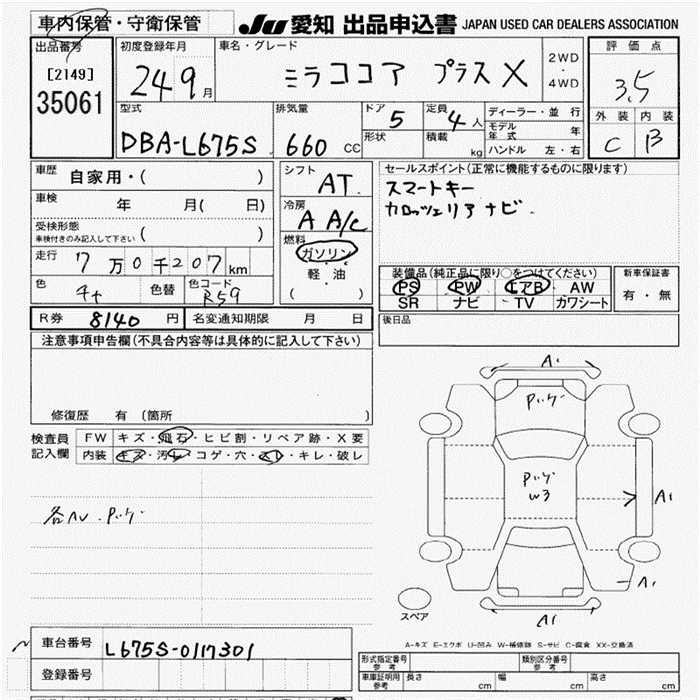 車内保管・守衛保管 JU 愛知 出品申込書 JAPAN USED CAR DEALERS ASSOCIATION
出品番号 [2149] 35061
初度登録年月 24 9月
車名・グレード ミラココア プラス X
2WD・4WD
評価点 3.5
外装 C 内装 B
型式 DBA-L675S
排気量 660 CC
ドア 5 形状
定員 4人 積載 kg
ディーラー・並行
モデル年式 年
ハンドル 左・右
車歴 自家用・( )
車検 年 月( 日)
受検形態 車検付きのみ記入して下さい ( )
走行 7万0千207km
色 色替 色コード R59
シフト AT
冷房 A A/C
燃料 ガソリン
軽・油
( )
セールスポイント(正常に機能するものに限ります)
スマートキー
カロッツェリアナビ.
装備品(純正品に限り○をつけてください)
PS PW エアB AW
SR ナビ TV ガワシート
新車保証書 有・無
R券 8140円 名変通知期限 月 日
後日品
注意事項申告欄(不具合内容等は具体的に記入して下さい)
修復歴 有 (箇所 )
検査員記入欄 FW キズ・飛石・ヒビ割・リペア跡・X要
内装 キズ・汚レ・コゲ・穴・スレ・キレ・破レ
A1
W3
A1
A1
A1
スペア
A-キズ E-エクボ U-凹み W-補修跡 S-サビ C-腐食 XX-交換済
車台番号 L675S-0117301
登録番号
形式指定番号 参考 類別区分番号 参考
車庫証明用 参考 長さ cm 幅 cm 高さ cm